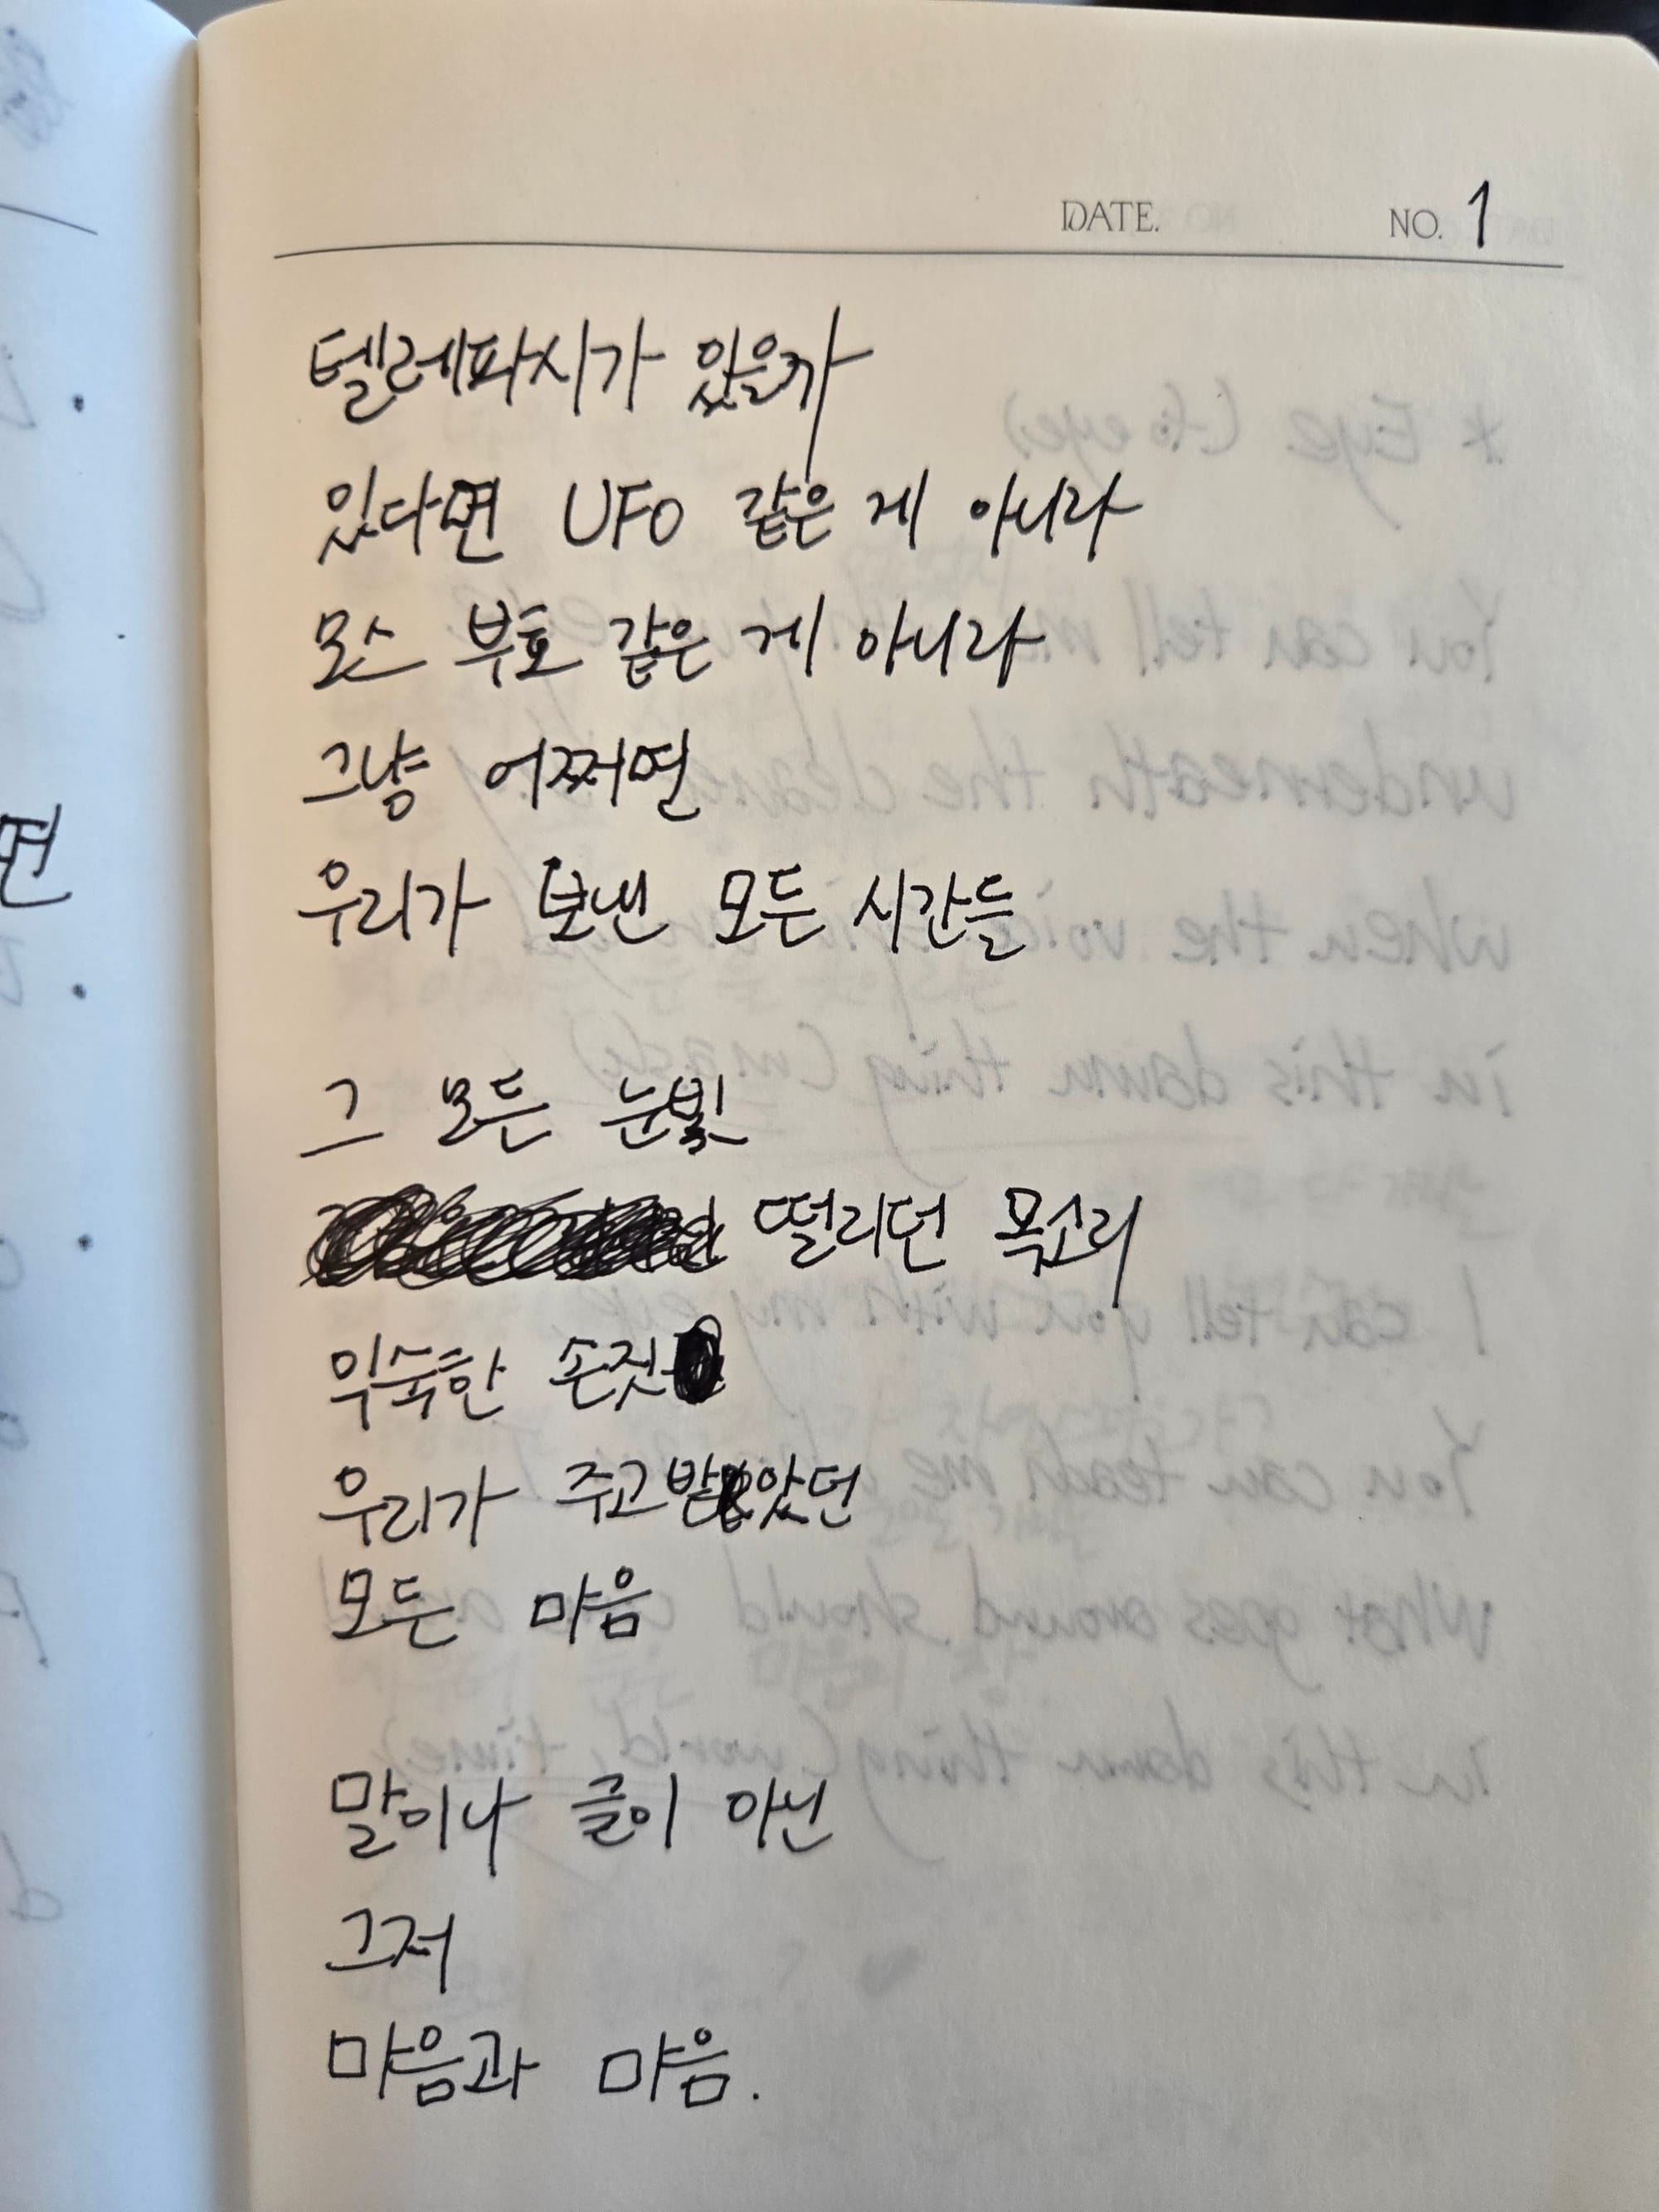 DATE. NO. 1
텔레파시가 있을까
있다면 UFO 같은 게 아니라
모스 부호 같은 게 아니라
그냥 어쩌면
우리가 보낸 모든 시간들
그 모든 눈빛
떨리던 목소리
익숙한 손짓
우리가 주고받았던
모든 마음
말이나 글이 아닌
그저
마음과 마음.